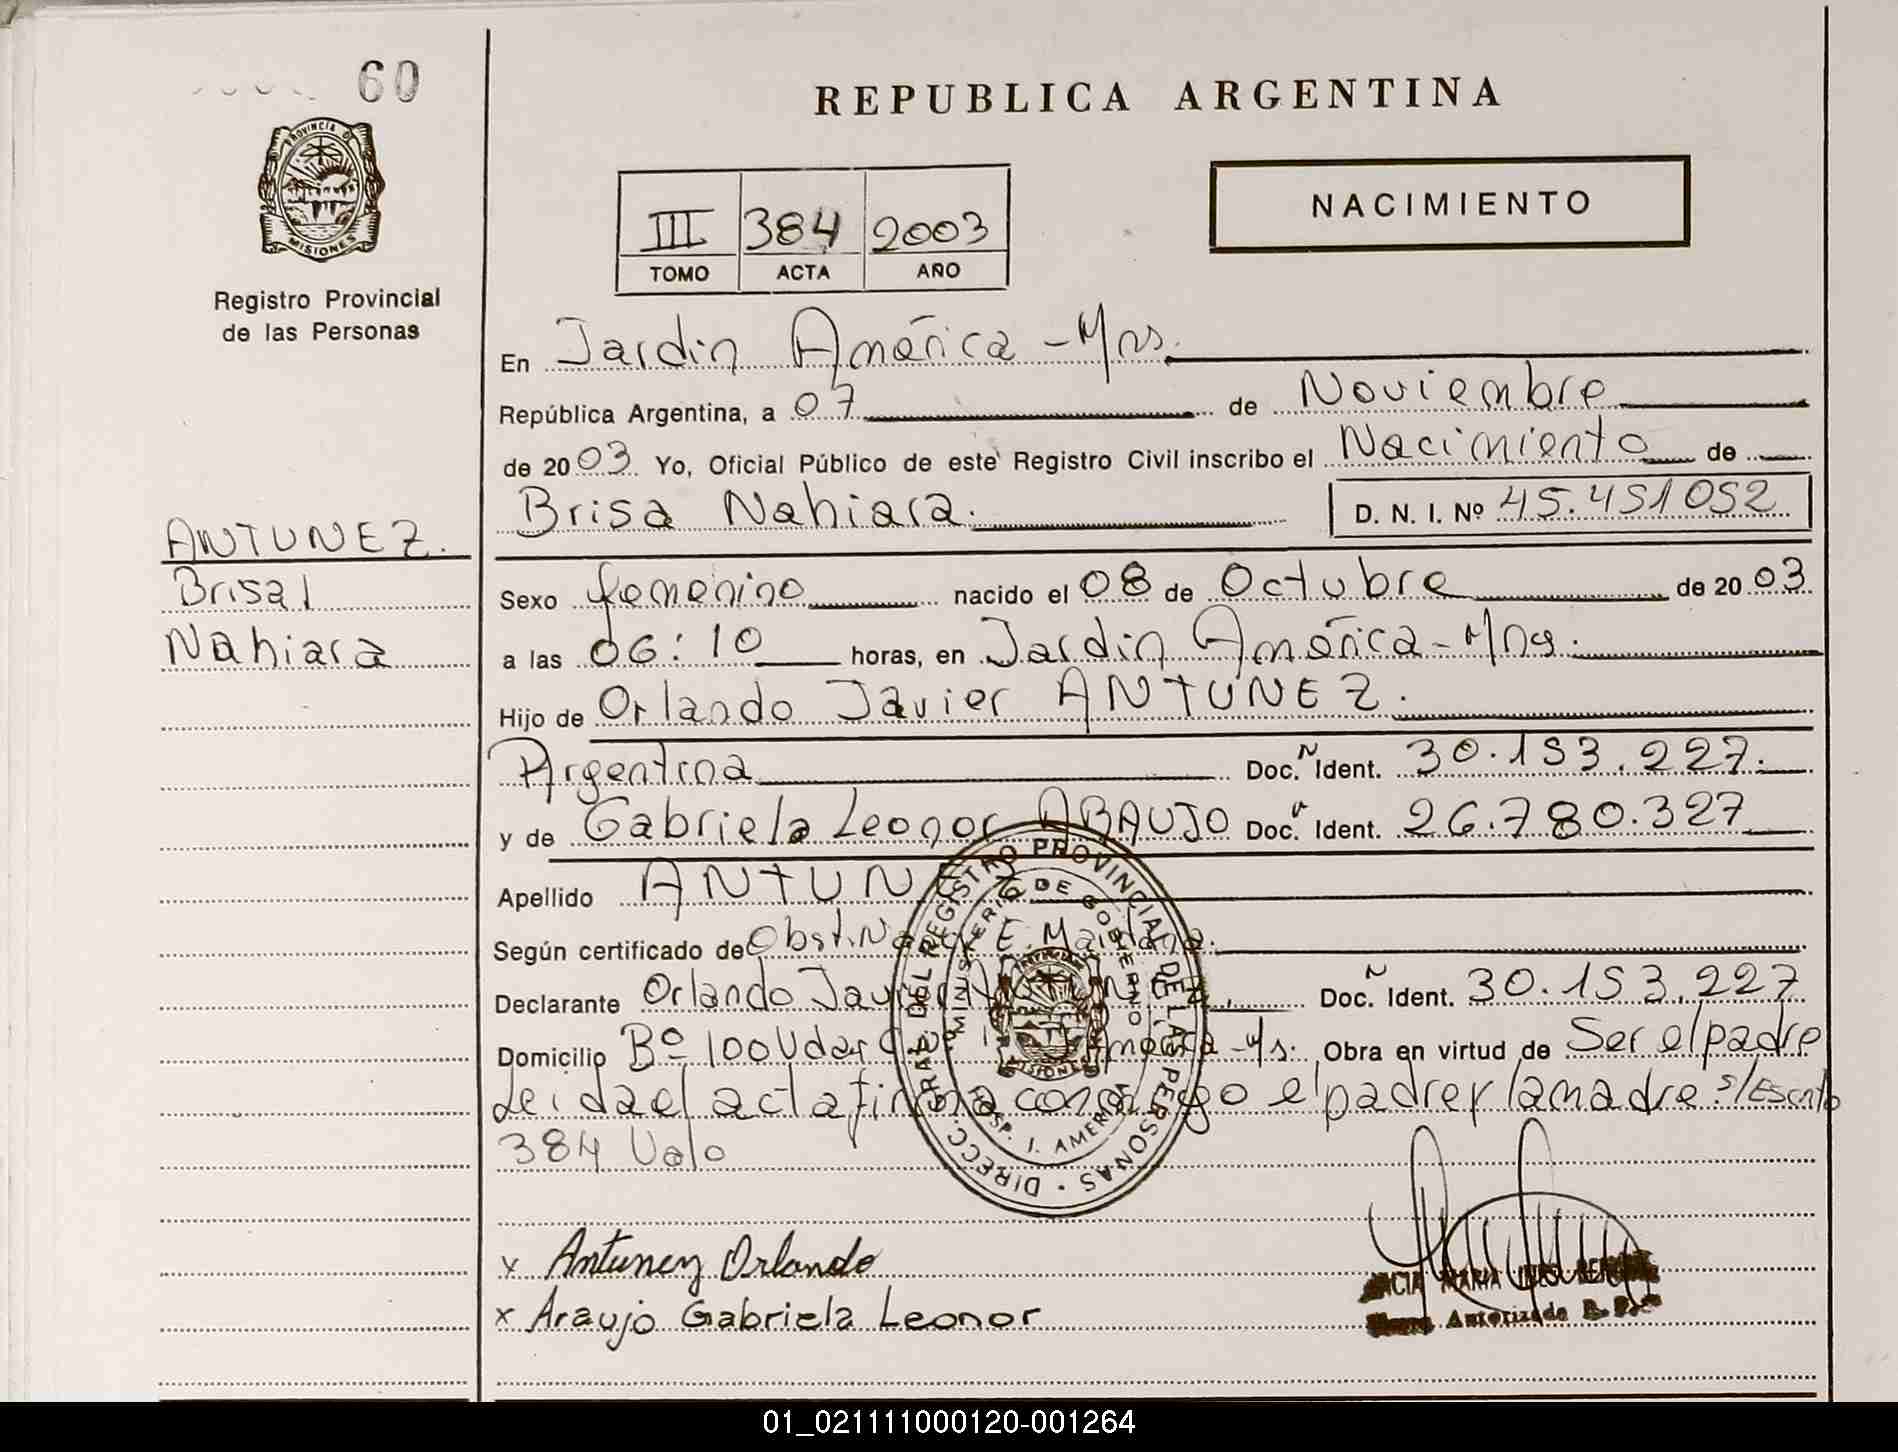 60
REPUBLICA ARGENTINA
PROVINCIA DE
MISIONES
III 384 2003
TOMO ACTA AÑO
NACIMIENTO
Registro Provincial
de las Personas
En Jardin América - Mns.
República Argentina, a 07 de Noviembre
de 2003 Yo, Oficial Público de este Registro Civil inscribo el Nacimiento de
Brisa Nahiara. D. N. I. Nº 45.451052
ANTUNEZ.
Brisa
Nahiara
Sexo femenino nacido el 08 de Octubre de 2003
a las 06:10 horas, en Jardin América - Mns.
Hijo de Orlando Javier ANTUNEZ.
Argentina Doc. Ident. 30.153.227.
y de Gabriela Leonor ARAUJO Doc. Ident. 26.780.327
Apellido ANTUN
Según certificado de Obst. E. Maidana.
Declarante Orlando Javier Doc. Ident. 30.153.227
Domicilio Bº 100 Obra en virtud de Ser el padre
Leida el acta firma conmigo el padre y la madre s/Escrito
384 Valo
DIRECC. GRAL. DEL REGISTRO PROVINCIAL DE LAS PERSONAS
MINISTERIO DE GOBIERNO
MISIONES
HOSP. J. AMERICA
x Antunez Orlando
x Araujo Gabriela Leonor
MARIA INES
Autorizada
01_021111000120-001264